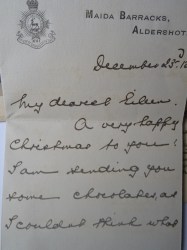 MAIDA BARRACKS,
ALDERSHOT
December 25.
My dearest Eileen.
A very happy
Christmas to you!
I am sending you
some chocolates, as
I couldn't think what